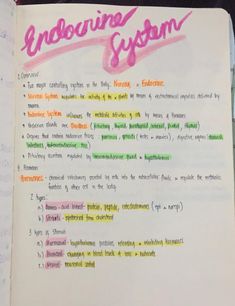 Endocrine
System
1. Overview
Two major controlling system in the body: Nervous & Endocrine
Nervous System regulates the activity of the
by means of electrochemical impulses delivered by
neurons.
Endocrine System influences the metabolic activities of cells by means of hormones
Endocrine Glands are Ductless (pituitary thyroid parathyroid adrenal, pineal thymus)
Organs that contain endocrine tissue: pancreas, gonads (testes & ovaries), digestive organs (stomach,
intestines,
Pituitary secretion regulated by & hypothalamus
2. Hormones
Hormones - chemical substances secreted by cells into the extracellular fluids & regulate the metabolic
function of other cell in the body.
2 types:
a.) Amino-acid based - protein, peptide,
b.) Steroids - synthesized from cholesterol
3 types of stimuli
a.) Hormonal - hypothalamic hormones releasing & inhibiting hormones
b.) Humoral - changing in blood levels of ions & nutrients
c.) Neural - neuronal control